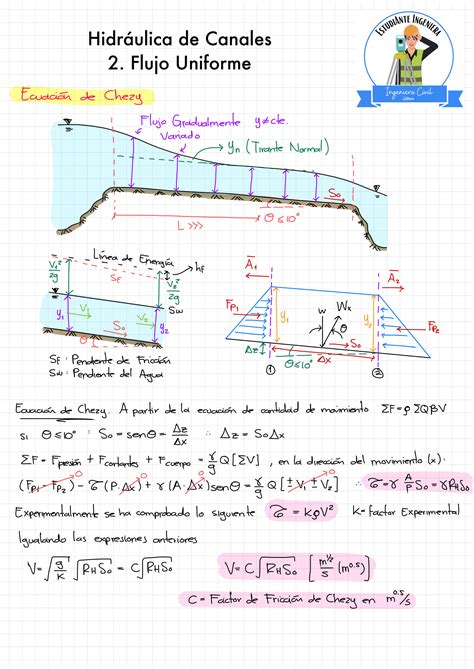 Hidráulica de Canales
2. Flujo Uniforme
EstudiAnte Ingeniera
Ingeniería Civil
Ecuación de Chezy
Flujo Gradualmente y≠cte.
Variado
yn (Tirante Normal)
So
θ≤10°
L >>>
Línea de Energía
V₁²/2g
Sf
hf
V₂²/2g
Sw
y₁
V₁
V₂
y₂
So
θ
Sf: Pendiente de Fricción
Sw: Pendiente del Agua
A₁
A₂
Fp₁
y₁
W
Wx
θ
y₂
Fp₂
So
Δz
θ≤10°
Δx
①
②
Ecuación de Chezy. A partir de la ecuación de cantidad de movimiento ΣF=ρΣQβV
Si θ≤10° : So=senθ=Δz/Δx ∴ Δz=SoΔx
ΣF=Fpresión+Fcortantes+Fcuerpo=γ/g Q[ΣV], en la dirección del movimiento (x):
(Fp₁-Fp₂)⁰-τ(P.Δx)+γ(A.Δx)senθ=γ/g Q[±V₁±V₂]⁰ ∴ τ=γ A/P So=γRHSo
Experimentalmente se ha comprobado lo siguiente τ=KρV² K=factor Experimental
Igualando las expresiones anteriores
V=√(g/K) √(RHSo) = C√(RHSo) V=C√(RHSo) [m^½/s (m^0.5)]
C = Factor de Fricción de Chezy en m^0.5/s